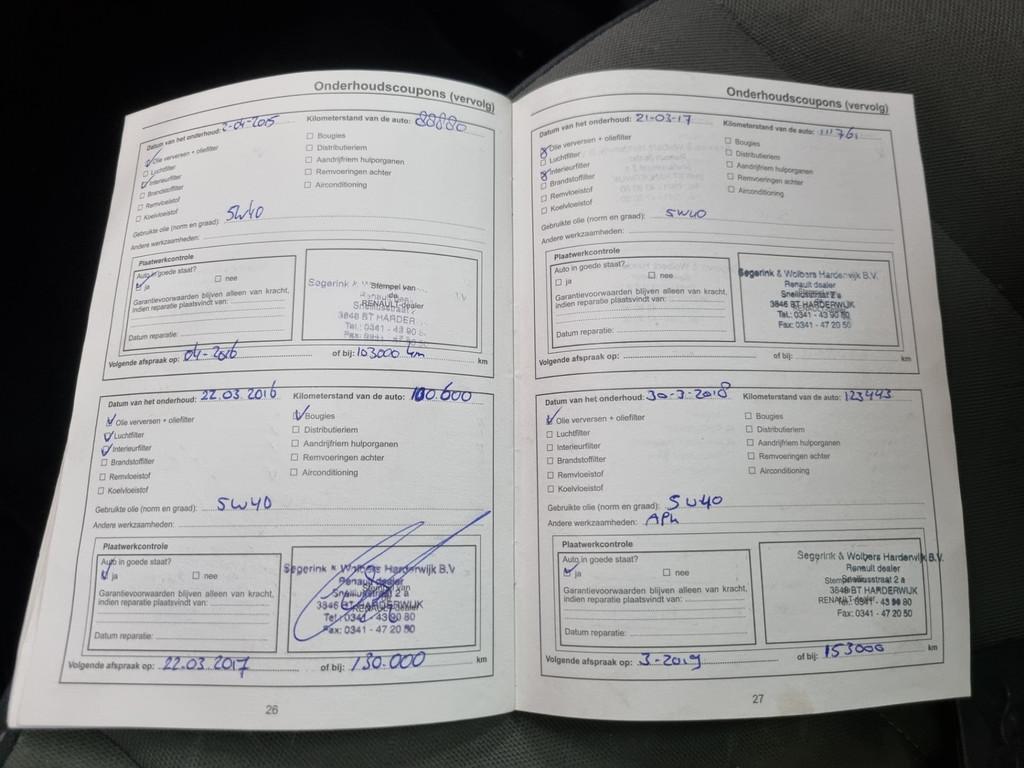 Onderhoudscoupons (vervolg)
Datum van het onderhoud: 2-04-2015 Kilometerstand van de auto: 88880
Olie verversen + oliefilter
Luchtfilter
Interieurfilter
Brandstoffilter
Remvloeistof
Koelvloeistof
Bougies
Distributieriem
Aandrijfriem hulporganen
Remvoeringen achter
Airconditioning
Gebruikte olie (norm en graad): 5W40
Andere werkzaamheden:
Plaatwerkcontrole
Auto in goede staat?
ja nee
Garantievoorwaarden blijven alleen van kracht,
indien reparatie plaatsvindt van:
Datum reparatie:
Stempel van
de
RENAULT-dealer
Segerink
3846 BT HARDER
Tel.: 0341 - 43 90 8
Fax: 0341 - 47 20 5
Volgende afspraak op: 04-2016 of bij: 103000 km km
Datum van het onderhoud: 22.03.2016 Kilometerstand van de auto: 100.600
Olie verversen + oliefilter
Luchtfilter
Interieurfilter
Brandstoffilter
Remvloeistof
Koelvloeistof
Bougies
Distributieriem
Aandrijfriem hulporganen
Remvoeringen achter
Airconditioning
Gebruikte olie (norm en graad): 5W40
Andere werkzaamheden:
Plaatwerkcontrole
Auto in goede staat?
ja nee
Garantievoorwaarden blijven alleen van kracht,
indien reparatie plaatsvindt van:
Datum reparatie:
Segerink & Wolbers Harderwijk B.V
Renault dealer
Snelliusstraat 2 a
3846 BT HARDERWIJK
Tel.: 0341 - 43 90 80
Fax: 0341 - 47 20 50
Stempel van
RENAULT-dealer
Volgende afspraak op: 22.03.2017 of bij: 130.000 km
26
Onderhoudscoupons (vervolg)
Datum van het onderhoud: 21-03-17 Kilometerstand van de auto: 111761
Olie verversen + oliefilter
Luchtfilter
Interieurfilter
Brandstoffilter
Remvloeistof
Koelvloeistof
Bougies
Distributieriem
Aandrijfriem hulporganen
Remvoeringen achter
Airconditioning
Gebruikte olie (norm en graad): 5W40
Andere werkzaamheden:
Plaatwerkcontrole
Auto in goede staat?
ja nee
Garantievoorwaarden blijven alleen van kracht,
indien reparatie plaatsvindt van:
Datum reparatie:
Segerink & Wolbers Harderwijk B.V.
Renault dealer
Snelliusstraat 2 a
3846 BT HARDERWIJK
Tel.: 0341 - 43 90 80
Fax: 0341 - 47 20 50
Volgende afspraak op: of bij: km
Datum van het onderhoud: 30-3-2018 Kilometerstand van de auto: 123443
Olie verversen + oliefilter
Luchtfilter
Interieurfilter
Brandstoffilter
Remvloeistof
Koelvloeistof
Bougies
Distributieriem
Aandrijfriem hulporganen
Remvoeringen achter
Airconditioning
Gebruikte olie (norm en graad): 5W40
Andere werkzaamheden: APK
Plaatwerkcontrole
Auto in goede staat?
ja nee
Garantievoorwaarden blijven alleen van kracht,
indien reparatie plaatsvindt van:
Datum reparatie:
Segerink & Wolbers Harderwijk B.V.
Renault dealer
Snelliusstraat 2 a
3846 BT HARDERWIJK
Tel.: 0341 - 43 90 80
Fax: 0341 - 47 20 50
Volgende afspraak op: 3-2019 of bij: 153000 km
27